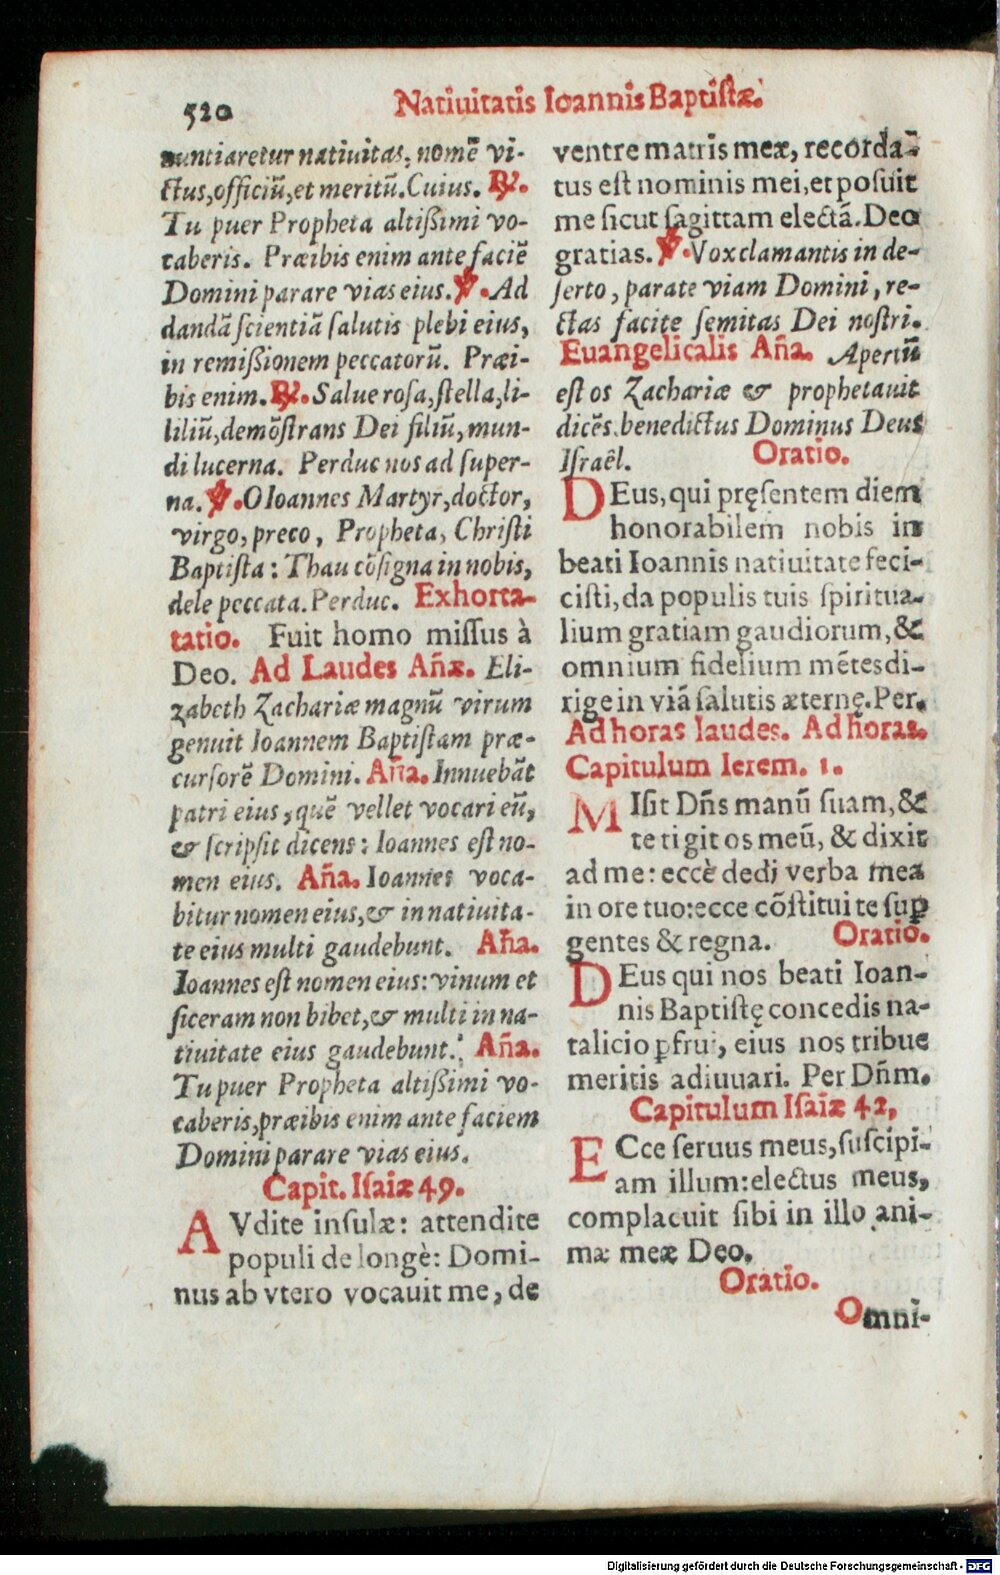 520
Natiuitatis Ioannis Baptistæ.
nuntiaretur natiuitas, nomē vi-
ctus, officiū, et meritū. Cuius. ℟.
Tu puer Propheta altißimi vo-
caberis. Præibis enim ante faciē
Domini parare vias eius. ℣. Ad
dandā scientiā salutis plebi eius,
in remißionem peccatorū. Præi-
bis enim. ℟. Salue rosa, stella, li-
liliū, demōstrans Dei filiū, mun-
di lucerna. Perduc nos ad super-
na. ℣. O Ioannes Martyr, doctor,
virgo, preco, Propheta, Christi
Baptista: Thau cōsigna in nobis,
dele peccata. Perduc. Exhorta-
tatio. Fuit homo missus à
Deo. Ad Laudes Añæ. Eli-
zabeth Zachariæ magnū virum
genuit Ioannem Baptistam præ-
cursorē Domini. Aña. Innuebāt
patri eius, quē vellet vocari eū,
& scripsit dicens: Ioannes est no-
men eius. Aña. Ioannes voca-
bitur nomen eius, & in natiuita-
te eius multi gaudebunt. Aña.
Ioannes est nomen eius: vinum et
siceram non bibet, & multi in na-
tiuitate eius gaudebunt. Aña.
Tu puer Propheta altißimi vo-
caberis, præibis enim ante faciem
Domini parare vias eius.
Capit. Isaiæ 49.
AVdite insulæ: attendite
populi de longè: Domi-
nus ab vtero vocauit me, de
ventre matris meæ, recorda-
tus est nominis mei, et posuit
me sicut sagittam electā. Deo
gratias. ℣. Vox clamantis in de-
serto, parate viam Domini, re-
ctas facite semitas Dei nostri.
Euangelicalis Aña. Apertū
est os Zachariæ & prophetauit
dicēs. benedictus Dominus Deus
Israël. Oratio.
DEus, qui pręsentem diem
honorabilem nobis in
beati Ioannis natiuitate feci-
cisti, da populis tuis spiritua-
lium gratiam gaudiorum, &
omnium fidelium mētes di-
rige in viā salutis æternę. Per.
Ad horas laudes. Ad horas.
Capitulum Ierem. 1.
MIsit Dñs manū suam, &
tetigit os meū, & dixit
ad me: eccè dedi verba mea
in ore tuo: ecce cōstitui te suꝑ
gentes & regna. Oratio.
DEus qui nos beati Ioan-
nis Baptistę concedis na-
talicio ꝑfrui, eius nos tribue
meritis adiuuari. Per Dñm.
Capitulum Isaiæ 42,
ECce seruus meus, suscipi-
am illum: electus meus,
complacuit sibi in illo ani-
ma meæ Deo.
Oratio.
Omni-
Digitalisierung gefördert durch die Deutsche Forschungsgemeinschaft - DFG